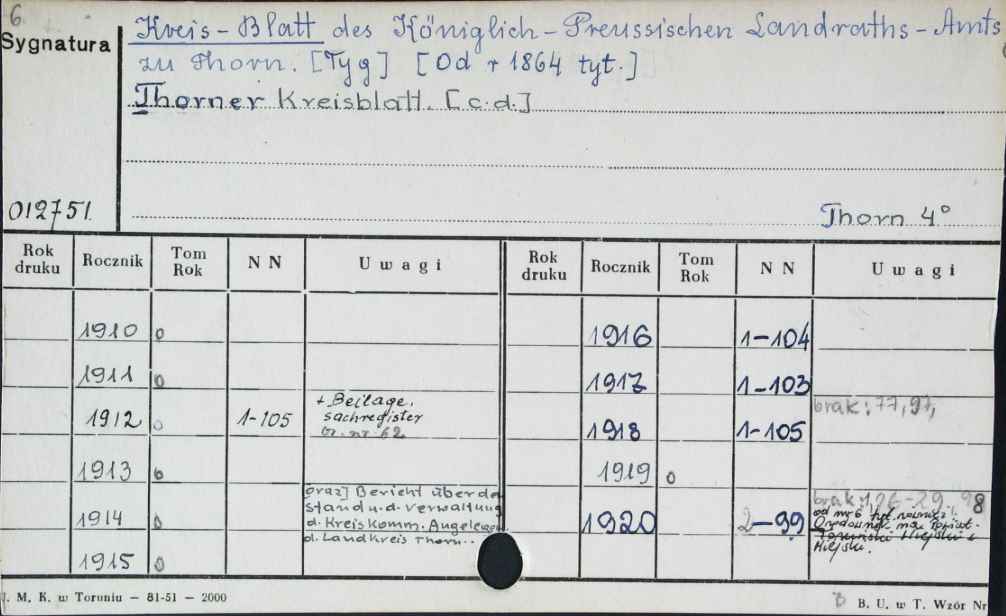 6.
Sygnatura
Kreis-Blatt des Königlich-Preussischen Landraths-Amts
zu Thorn. [Tyg] [Od r 1864 tyt.]
Thorner Kreisblatt. [c.d.]
012751.
Thorn 4°
Rok druku Rocznik Tom Rok NN Uwagi Rok druku Rocznik Tom Rok NN Uwagi
1910 0 1916 1-104
1911 0 1917 1-103
1912 0 1-105 + Beilage. sachregister nr. 62 1918 1-105 brak: 77, 97,
1913 0 1919 0
1914 0 oraz] Bericht über de Stand u. d. Verwaltung d. Kreiskomm. Angelegen. d. Landkreis Thorn.. 1920 2-99 brak 26-29, 98 od nr 6 tyt również: Orędownik na Toruński Miejski i Miejski.
1915 0
J. M. K. w Toruniu — 81-51 — 2000
B. U. w T. Wzór Nr